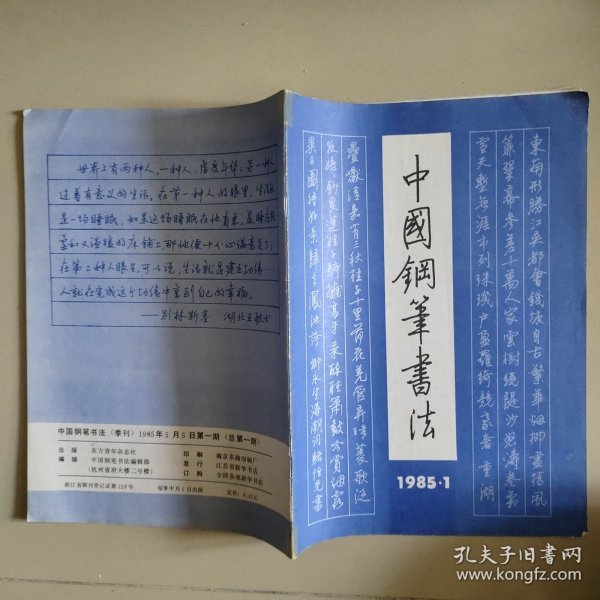 世界上有两种人,一种人,虚度年华;另一种人
过着有意义的生活。在第一种人的眼里,生活就
是一场睡眠,如果这场睡眠在他看来,是睡在既
柔和又温暖的床铺上,那他便十分心满意足了;
在第二种人眼里,可以说,生活就是建立功绩……
人就在完成这个功绩中享到自己的幸福。
——别林斯基 湖北王敬
中国钢笔书法(季刊)1985年5月5日第一期(总第一期)
出版 东方青年杂志社
编辑 中国钢笔书法编辑部
(杭州省府大楼二号楼)
印刷 南京东海印刷厂
发行 江苏省新华书店
订购 全国各地新华书店
浙江省期刊登记证第129号 每季中月5日出版 定价:0.45元
中國鋼筆書法
1985·1
東南形勝江吳都會錢塘自古繁華烟柳畫橋風
簾翠幕參差十萬人家雲樹繞堤沙怒濤卷霜
雪天塹無涯市列珠璣户盈羅綺競豪奢重湖
疊巘清嘉有三秋桂子十里荷花羌管弄晴菱歌泛
夜嬉嬉釣叟蓮娃千騎擁高牙乘醉聽簫鼓吟賞烟霞
異日圖將好景歸去鳳池誇 柳永望海潮
孔夫子旧书网
www.kongfz.com